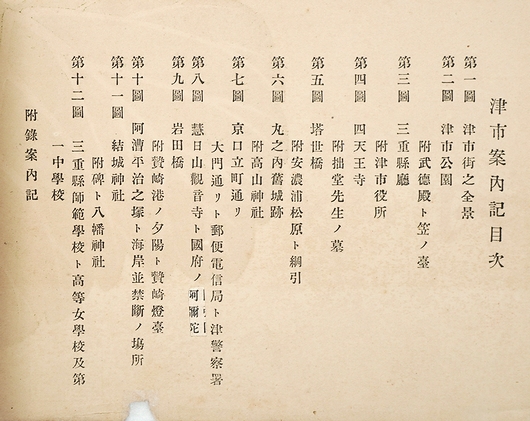 津市案內記目次
第一圖　津市街之全景
第二圖　津市公園
附武德殿ト笠ノ臺
第三圖　三重縣廳
附津市役所
第四圖　四天王寺
附拙堂先生ノ墓
第五圖　塔世橋
附安濃浦松原ト網引
第六圖　丸之內舊城跡
附高山神社
第七圖　京口立町通リ
大門通リト郵便電信局ト津警察署
第八圖　慧日山觀音寺ト國府ノ阿彌陀
第九圖　岩田橋
附贄崎港ノ夕陽ト贄崎燈臺
第十圖　阿漕平治之塚ト海岸並禁斷ノ塲所
第十一圖　結城神社
附碑ト八幡神社
第十二圖　三重縣師範學校ト高等女學校及第
一中學校
附錄案內記